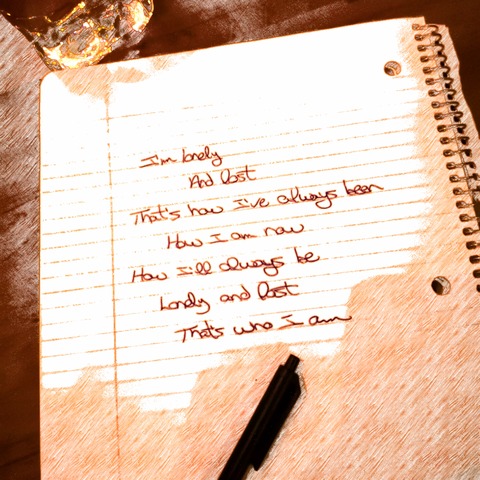 I'm lonely
And lost
That's how I've always been
How I am now
How I'll always be
Lonely and lost
That's who I am